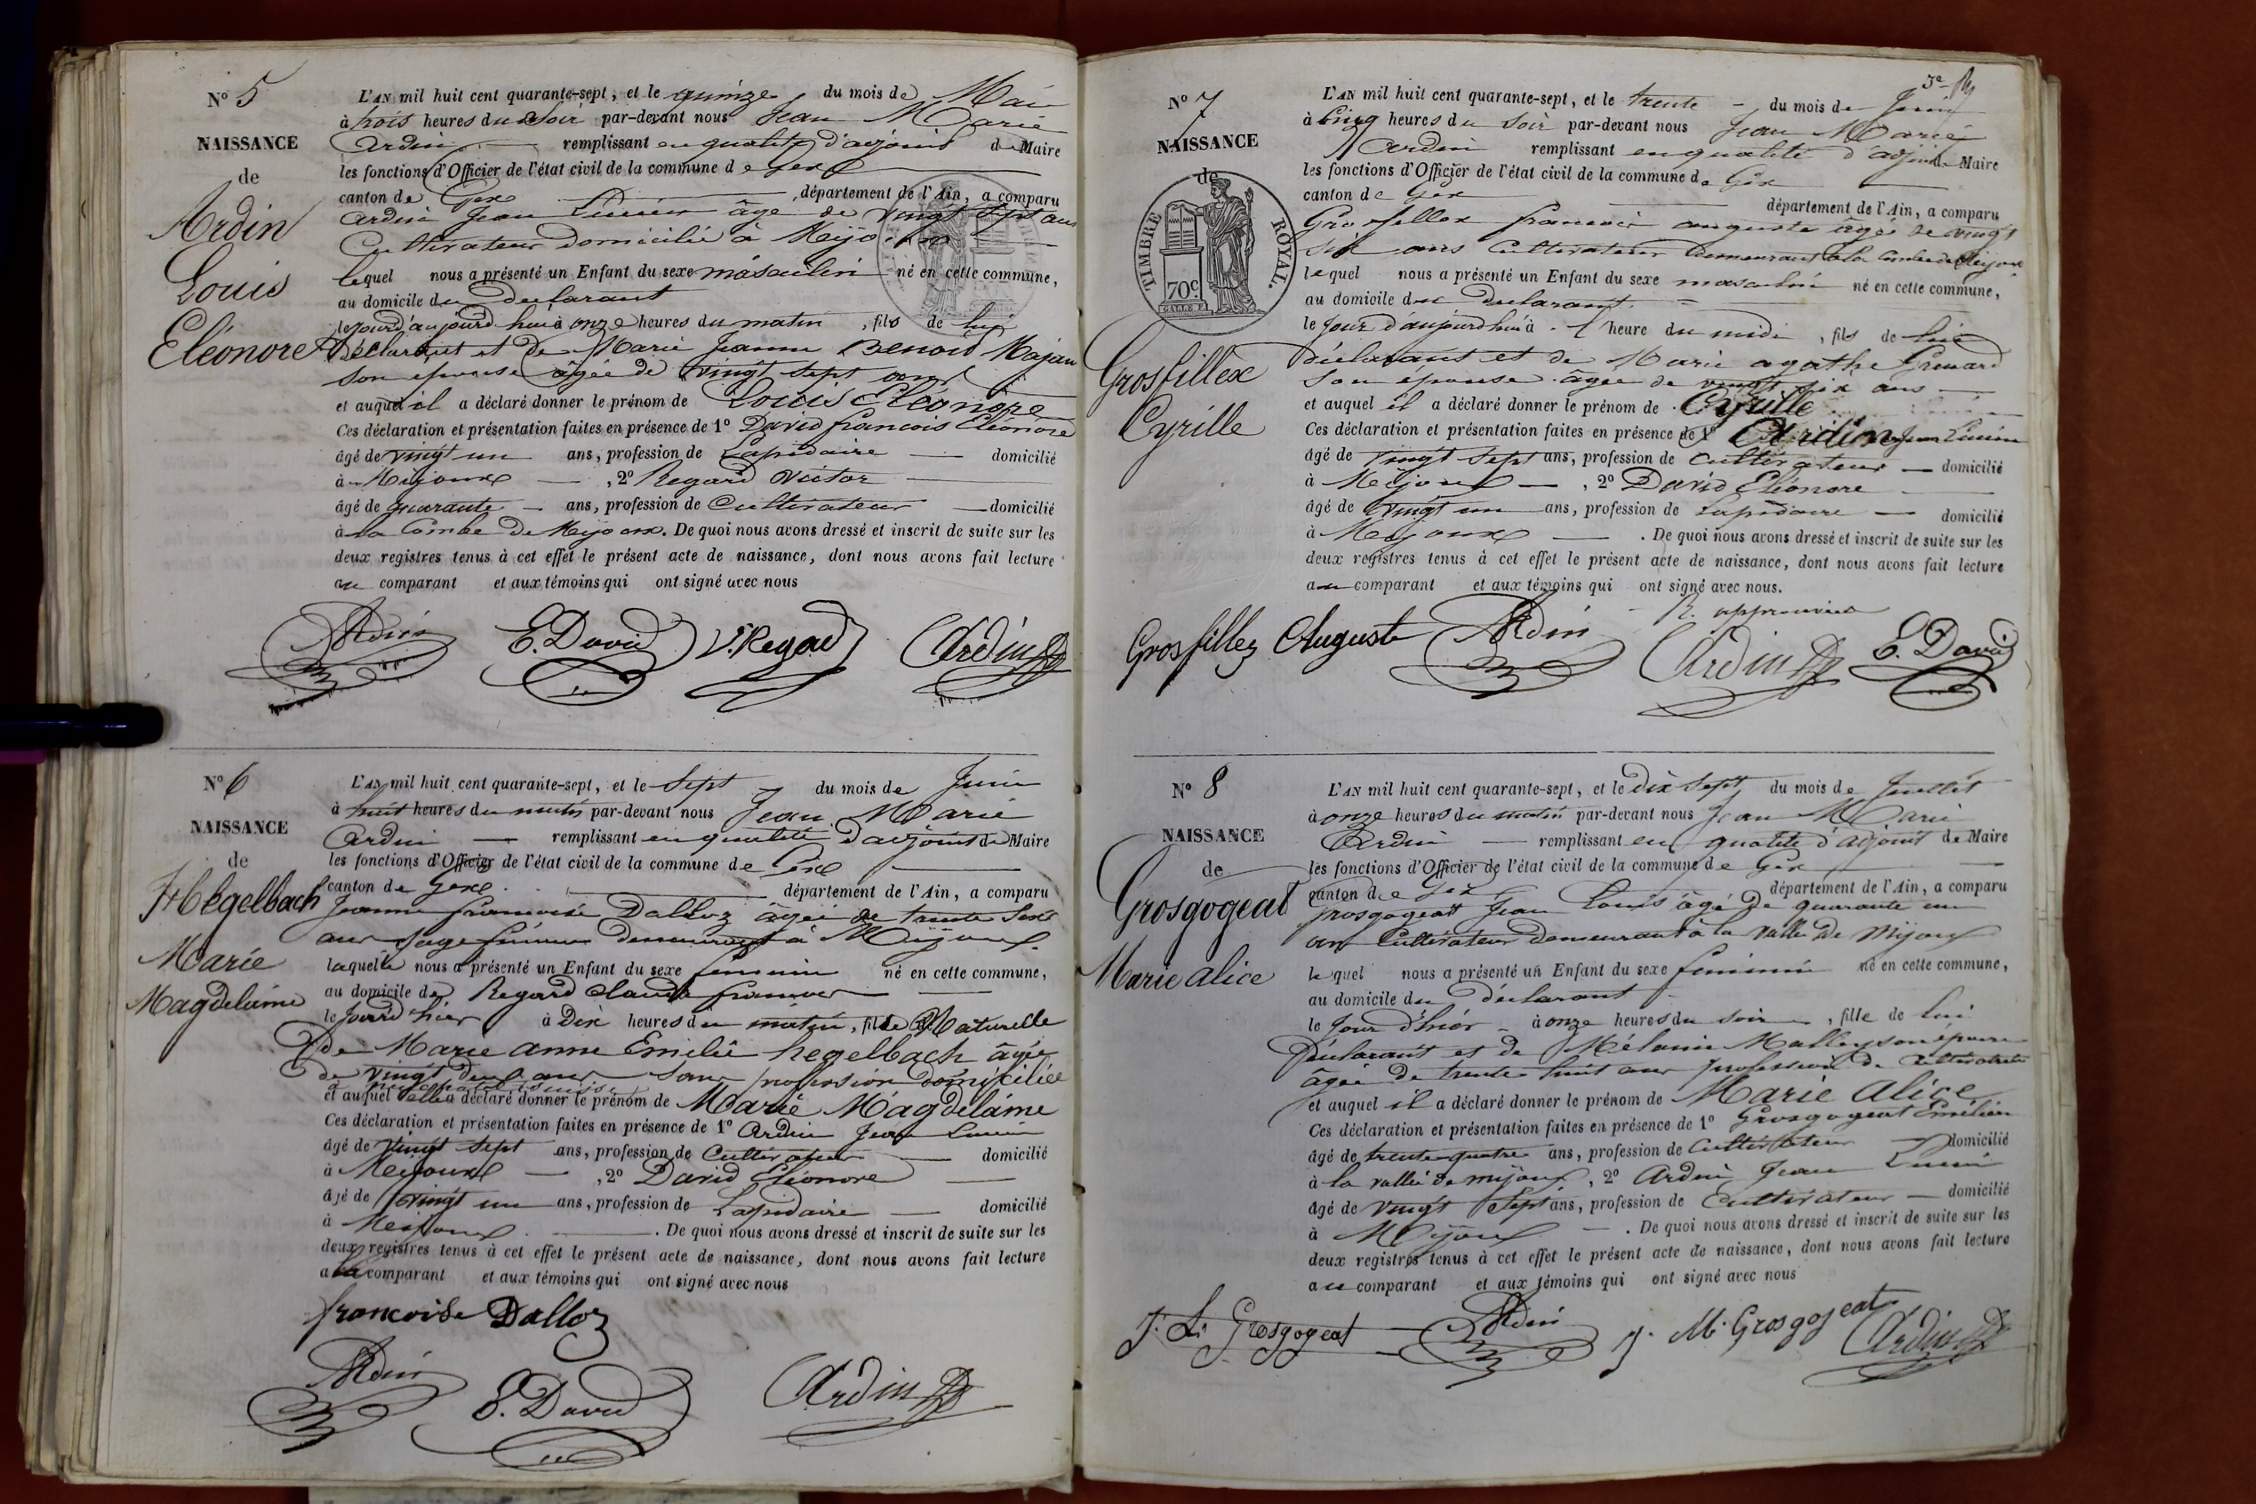 N° 5
NAISSANCE
de
Ardin
Louis
Eléonore
L'AN mil huit cent quarante-sept, et le quinze du mois de Mai
à trois heures du soir par-devant nous Jean Marie
Ardin remplissant en qualité d'adjoint du Maire
les fonctions d'Officier de l'état civil de la commune de Gex
canton de Gex, département de l'Ain, a comparu
Ardin Jean Lucien âgé de vingt sept ans
Cultivateur domicilié à Mijoux
lequel nous a présenté un Enfant du sexe masculin né en cette commune,
au domicile du declarant
le jourd'aujourd'hui à onze heures du matin, fils de lui
déclarant et de Marie Jeanne Benoit
son épouse âgée de vingt sept ans
et auquel il a déclaré donner le prénom de Louis Eléonore
Ces déclaration et présentation faites en présence de 1° David françois Eléonore
âgé de vingt un ans, profession de Lapidaire domicilié
à Mijoux, 2° Regard Victor
âgé de quarante ans, profession de Cultivateur domicilié
à la Combe de Mijoux. De quoi nous avons dressé et inscrit de suite sur les
deux registres tenus à cet effet le présent acte de naissance, dont nous avons fait lecture
au comparant et aux témoins qui ont signé avec nous
Ardin E. David V. Regad Ardin
N° 6
NAISSANCE
de
Hegelbach
Marie
Magdelaine
L'AN mil huit cent quarante-sept, et le sept du mois de Juin
à huit heures du matin par-devant nous Jean Marie
Ardin remplissant en qualité d'adjoint du Maire
les fonctions d'Officier de l'état civil de la commune de Gex
canton de Gex. département de l'Ain, a comparu
Jeanne françoise Dalloz âgée de trente
ans sage femme demeurant à Mijoux
laquelle nous a présenté un Enfant du sexe féminin né en cette commune,
au domicile de Regard Claude françois
le jour d'hier à Dix heures du matin, fille Naturelle
De Marie anne Emelie hegelbach âgée
de vingt deux ans sans profession domiciliée
et auquel elle a déclaré donner le prénom de Marie Magdelaine
Ces déclaration et présentation faites en présence de 1° Ardin Jean Lucien
âgé de vingt sept ans, profession de Cultivateur domicilié
à Mijoux, 2° David Eléonore
âgé de vingt un ans, profession de Lapidaire domicilié
à Mijoux. De quoi nous avons dressé et inscrit de suite sur les
deux registres tenus à cet effet le présent acte de naissance, dont nous avons fait lecture
a la comparant et aux témoins qui ont signé avec nous
francoise Dalloz
Ardin E. David Ardin
3e
N° 7
NAISSANCE
de
TIMBRE ROYAL.
70c
Grosfillex
Cyrille
L'AN mil huit cent quarante-sept, et le trente du mois de Juin
à cinq heures du soir par-devant nous Jean Marie
Ardin remplissant en qualité d'adjoint Maire
les fonctions d'Officier de l'état civil de la commune de Gex
canton de Gex département de l'Ain, a comparu
Grosfillex françois auguste âgé de vingt
six ans Cultivateur demeurant à la Combe de Mijoux
lequel nous a présenté un Enfant du sexe masculin né en cette commune,
au domicile du declarant
le jour d'aujourd'hui à heure du midi, fils de lui
déclarant et de Marie agathe Grenard
son épouse âgée de vingt six ans
et auquel il a déclaré donner le prénom de Cyrille
Ces déclaration et présentation faites en présence de 1° Ardin Jean Lucien
âgé de vingt sept ans, profession de cultivateur domicilié
à Mijoux, 2° David Eléonore
âgé de vingt un ans, profession de Lapidaire domicilié
à Mijoux. De quoi nous avons dressé et inscrit de suite sur les
deux registres tenus à cet effet le présent acte de naissance, dont nous avons fait lecture
au comparant et aux témoins qui ont signé avec nous.
Grosfillex Auguste Ardin Ardin E. David
N° 8
NAISSANCE
de
Grosgogeat
Marie alice
L'AN mil huit cent quarante-sept, et le dix sept du mois de Juillet
à onze heures du matin par-devant nous Jean Marie
Ardin remplissant en qualité d'adjoint de Maire
les fonctions d'Officier de l'état civil de la commune de Gex
canton de Gex département de l'Ain, a comparu
Grosgogeat Jean Louis âgé de quarante un
ans Cultivateur demeurant à la vallée de Mijoux
lequel nous a présenté un Enfant du sexe féminin né en cette commune,
au domicile du déclarant
le jour d'hier à onze heures du soir, fille de lui
déclarant et de Mélanie Malley son épouse
âgée de trente huit ans profession de cultivatrice
et auquel il a déclaré donner le prénom de Marie Alice
Ces déclaration et présentation faites en présence de 1° Grosgogeat Emélien
âgé de trente quatre ans, profession de Cultivateur domicilié
à la vallée de mijoux, 2° Ardin Jean Lucien
âgé de vingt sept ans, profession de Cultivateur domicilié
à Mijoux. De quoi nous avons dressé et inscrit de suite sur les
deux registres tenus à cet effet le présent acte de naissance, dont nous avons fait lecture
au comparant et aux témoins qui ont signé avec nous
J. L. Grosgogeat Ardin J. M. Grosgogeat Ardin